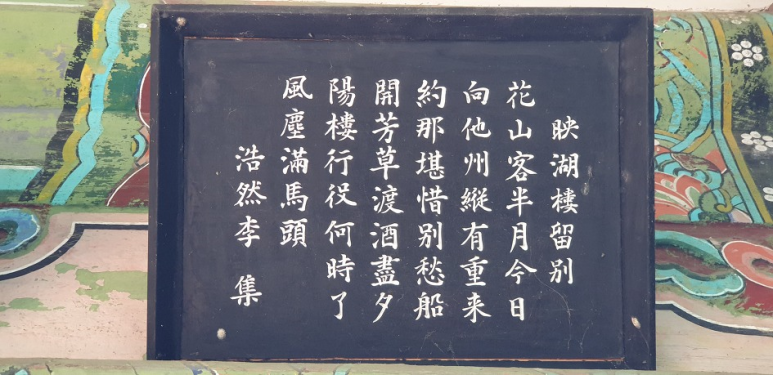 映湖樓留別
花山客半月今日
向他州縱有重来
約那堪惜別愁船
開芳草渡酒盡夕
陽樓行役何時了
風塵滿馬頭
浩然李 集